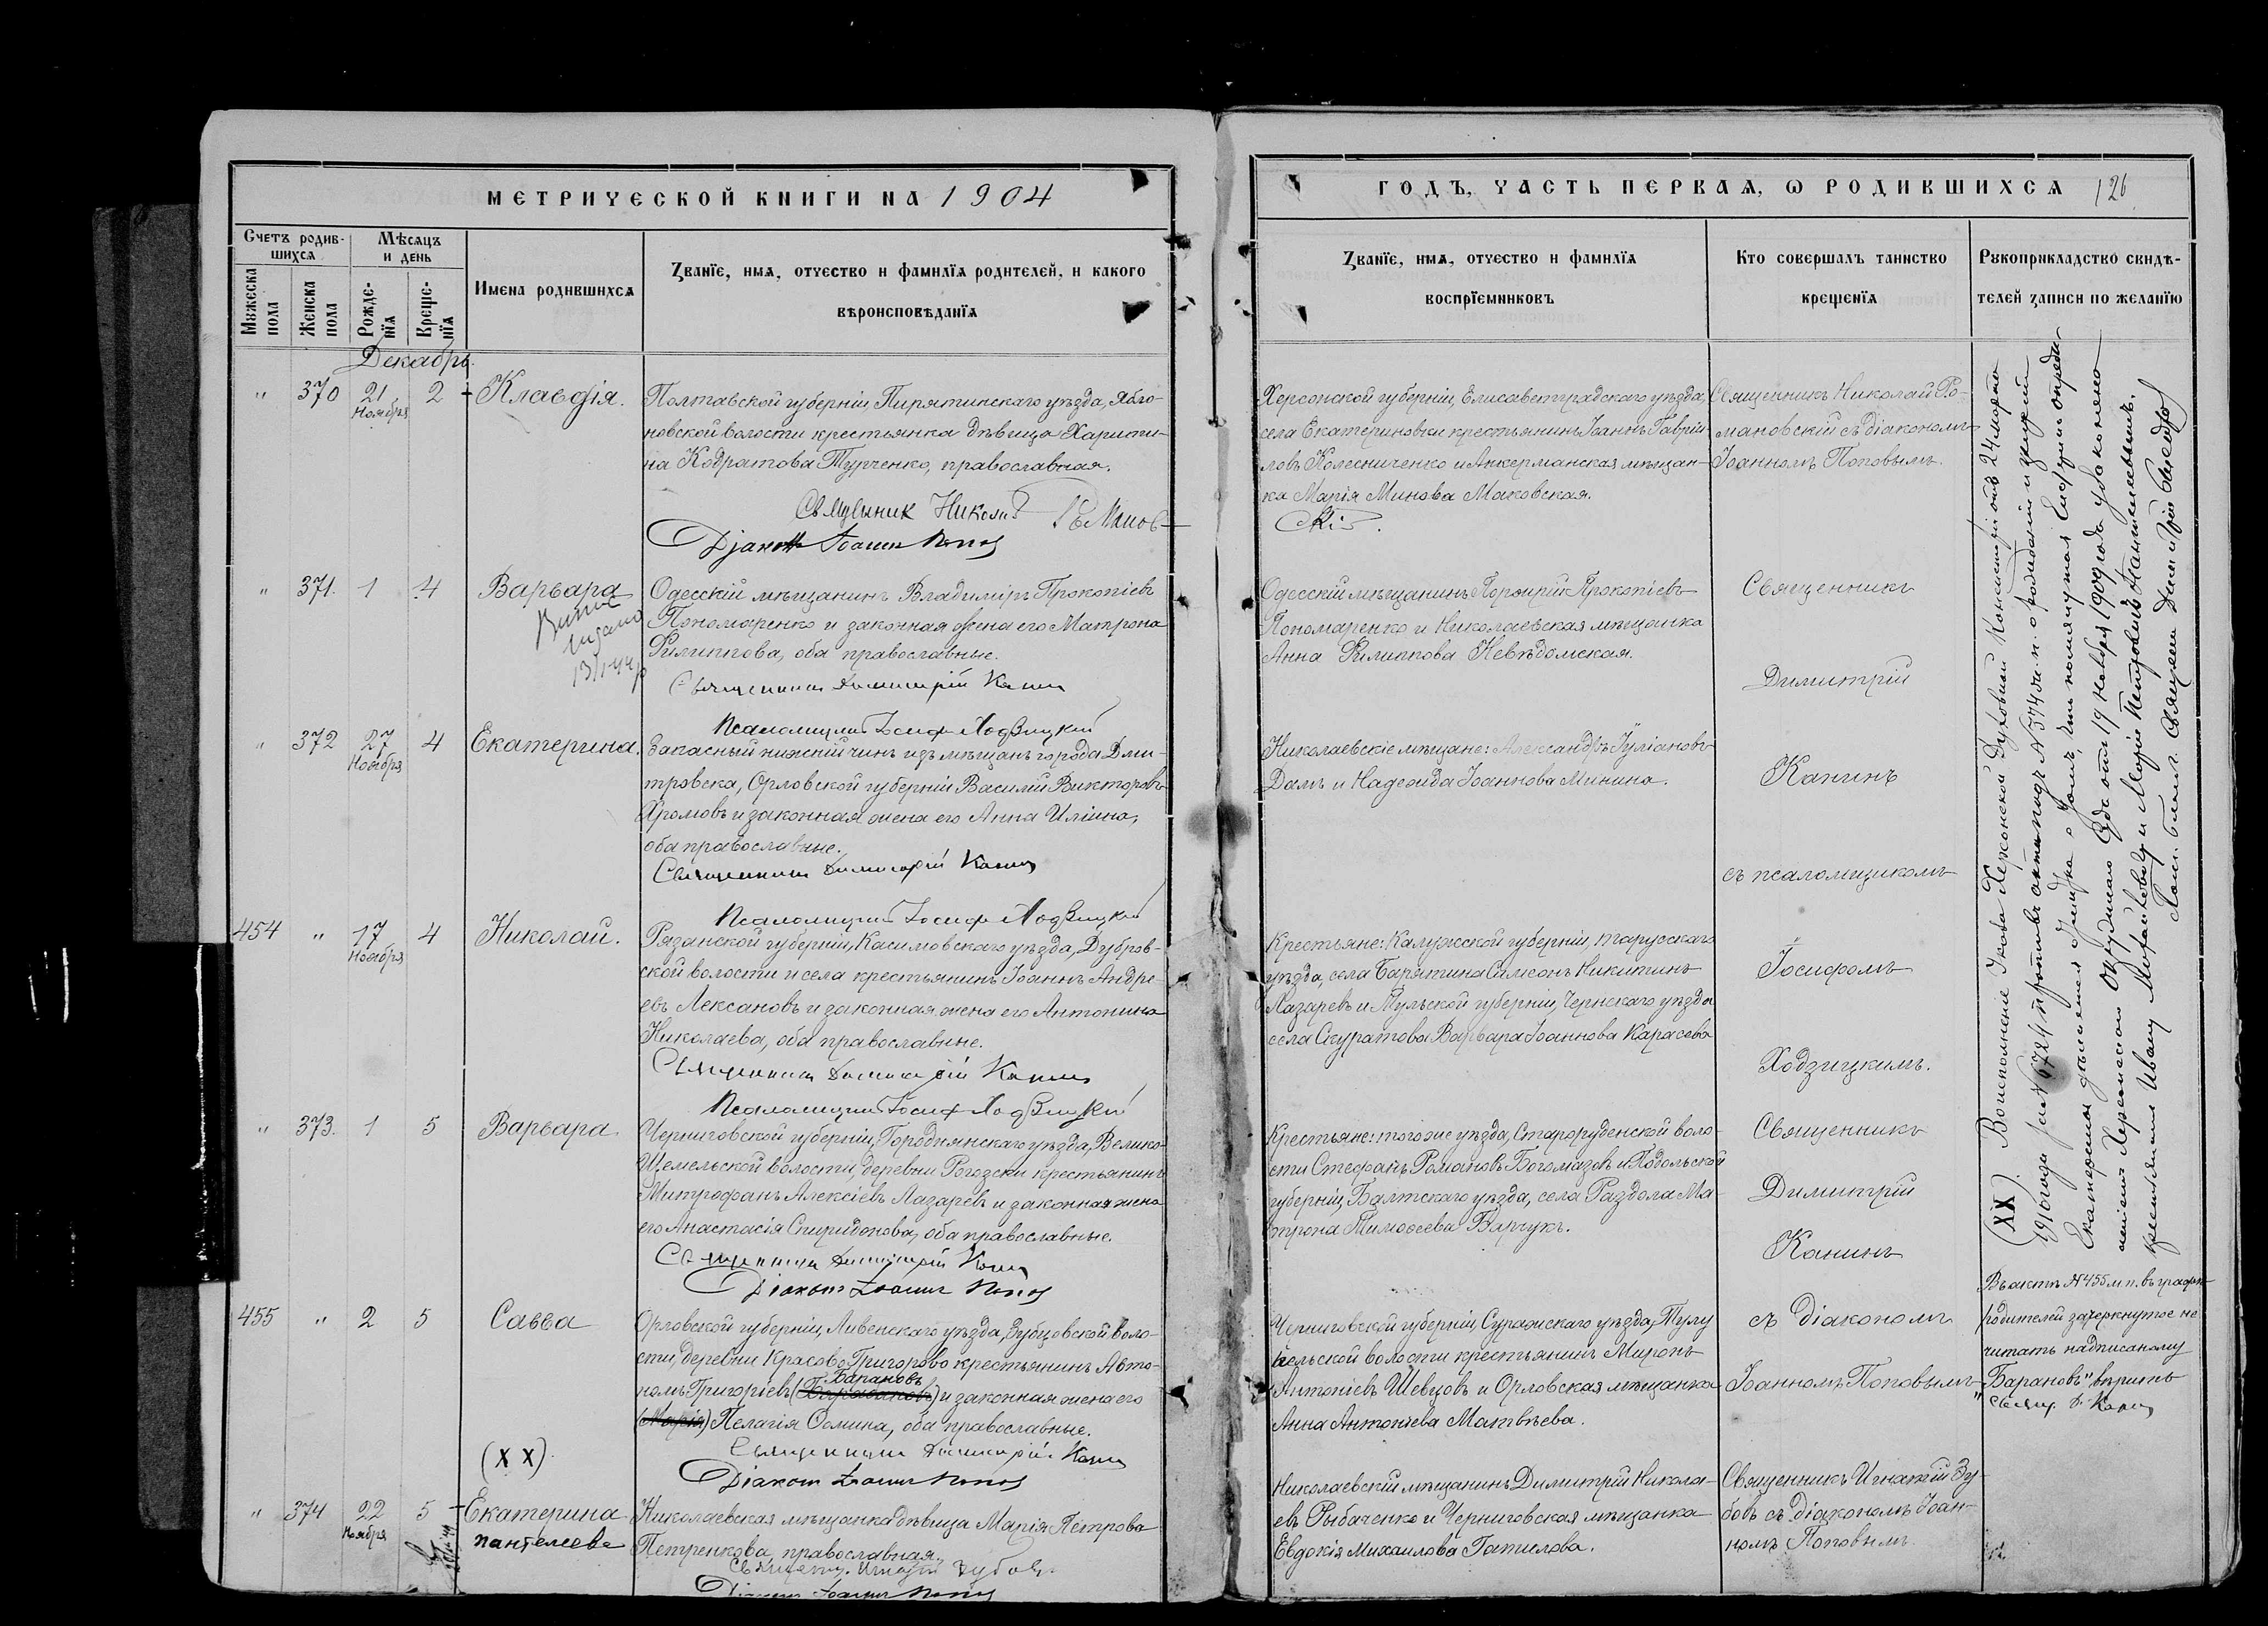 МЕТРИЧЕСКОЙ КНИГИ НА 1904
Счетъ родившихся
Мѣсяцъ и день
Мужеска пола
Женска пола
Рожденїя
Крещенїя
Имена родившихся
Званїе, имя, отчество и фамилїя родителей, и какого
вѣроисповѣданїя
Декабрь.
" 370 21 Ноября 2 Клавдія.
Полтавской губерніи, Пирятинскаго уѣзда, Ябло-
новской волости крестьянка дѣвица Харити-
на Кодратова Турченко, православная.
Священникъ Николай Романов-
Діаконъ Іоаннъ Поповъ
" 371. 1 4 Варвара
Одесскій мѣщанинъ Владиміръ Прокопіевъ
Пономаренко и законная жена его Матрона
Филиппова, оба православные.
Священникъ Димитрій Канинъ
Псаломщикъ Іосифъ Ходзицкій
" 372 27 Ноября 4 Екатерина.
Запасный нижній чинъ изъ мѣщанъ города Дми-
тровска, Орловской губерніи Василій Викторовъ
Хромовъ и законная жена его Анна Иліина,
оба православные.
Священникъ Димитрій Канинъ
Псаломщикъ Іосифъ Ходзицкій
454 " 17 Ноября 4 Николай.
Рязанской губерніи, Касимовскаго уѣзда, Дубров-
ской волости и села крестьянинъ Іоаннъ Андре-
евъ Лексановъ и законная жена его Антонина
Николаева, оба православные.
Священникъ Димитрій Канинъ
Псаломщикъ Іосифъ Ходзицкій
" 373. 1 5 Варвара
Черниговской губерніи, Городнянскаго уѣзда, Велико-
Щемельской волости, деревни Рогозски крестьянинъ
Митрофанъ Алексіевъ Лазаревъ и законная жена
его Анастасія Спиридонова, оба православные.
Священникъ Димитрій Канинъ
Діаконъ Іоаннъ Поповъ
455 " 2 5 Савва
Орловской губерніи, Ливенскаго уѣзда, Зубцовской воло-
сти, деревни Красово-Григорово крестьянинъ Авто-
Барановъ
номъ Григоріевъ и законная жена его
(Марія) Пелагія Осмина, оба православные.
Священникъ Димитрій Канинъ
Діаконъ Іоаннъ Поповъ
(X X)
" 374 22 Ноября 5 Екатерина
Пантелеева
Николаевская мѣщанка дѣвица Марія Петрова
Петренкова, православная.
Священ. Игнатій Зубовъ
Діаконъ Іоаннъ Поповъ
ГОДЪ, ЧАСТЬ ПЕРВАЯ, Ѡ РОДИВШИХСЯ 126
Званїе, имя, отчество и фамилїя
воспрїемниковъ
Кто совершалъ таинство
крещенїя
Рукоприкладство свидѣ-
телей записи по желанїю
Херсонской губерніи, Елисаветградскаго уѣзда,
села Екатериновки крестьянинъ Іоаннъ Гаврии-
ловъ Колесниченко и Аккерманская мѣщан-
ка Марія Минова Маковская.
скій.
Священникъ Николай Ро-
мановскій съ діакономъ
Іоанномъ Поповымъ.
Одесскій мѣщанинъ Порфирій Прокопіевъ
Пономаренко и Николаевская мѣщанка
Анна Филиппова Невѣдомская.
Священникъ
Димитрій
Николаевскіе мѣщане: Александръ Іуліановъ
Дамъ и Надежда Іоаннова Минина.
Канинъ
съ псаломщикомъ
Крестьяне: Калужской губерніи, Тарусскаго
уѣзда, села Барятина Симеонъ Никитинъ
Лазаревъ и Тульской губерніи, Чернскаго уѣзда
села Скуратова Варвара Іоаннова Карасева
Іосифомъ
Ходзицкимъ.
Крестьяне: того же уѣзда, Старорудненской воло-
сти Стефанъ Романовъ Богомазовъ и Подольской
губерніи, Балтскаго уѣзда, села Раздола Ма-
трона Тимофеева Барчукъ.
Священникъ
Димитрій
Канинъ
Черниговской губерніи, Суражскаго уѣзда, Тулу
бельской волости крестьянинъ Миронъ
Антоніевъ Шевцовъ и Орловская мѣщанка
Анна Антоніева Матвѣева.
съ діакономъ
Іоанномъ Поповымъ
Николаевскій мѣщанинъ Димитрій Никола-
евъ Рыбаченко и Черниговская мѣщанка
Евдокія Михаилова Гатилова.
Священникъ Игнатій Зу-
бовъ съ діакономъ Іоан-
номъ Поповымъ
(XX). Во исполненіе Указа Херсонской Духовной Консисторіи отъ 24 марта
1910 года за № 6724 противъ акта подъ № 374 ж. п. о рожденіи и крещеніи
Екатерины дѣлается о томъ, что
Херсонскаго Окружнаго Суда отъ 19 Ноября 1909 года усыновлена
крестьянами Иваномъ и Маріей Пантелеевыми.
Въ актѣ № 455 м. п. въ графѣ
родителей зачеркнутое не
читать надписаному
"Барановъ" вѣрить
Свящ. Д. Канинъ